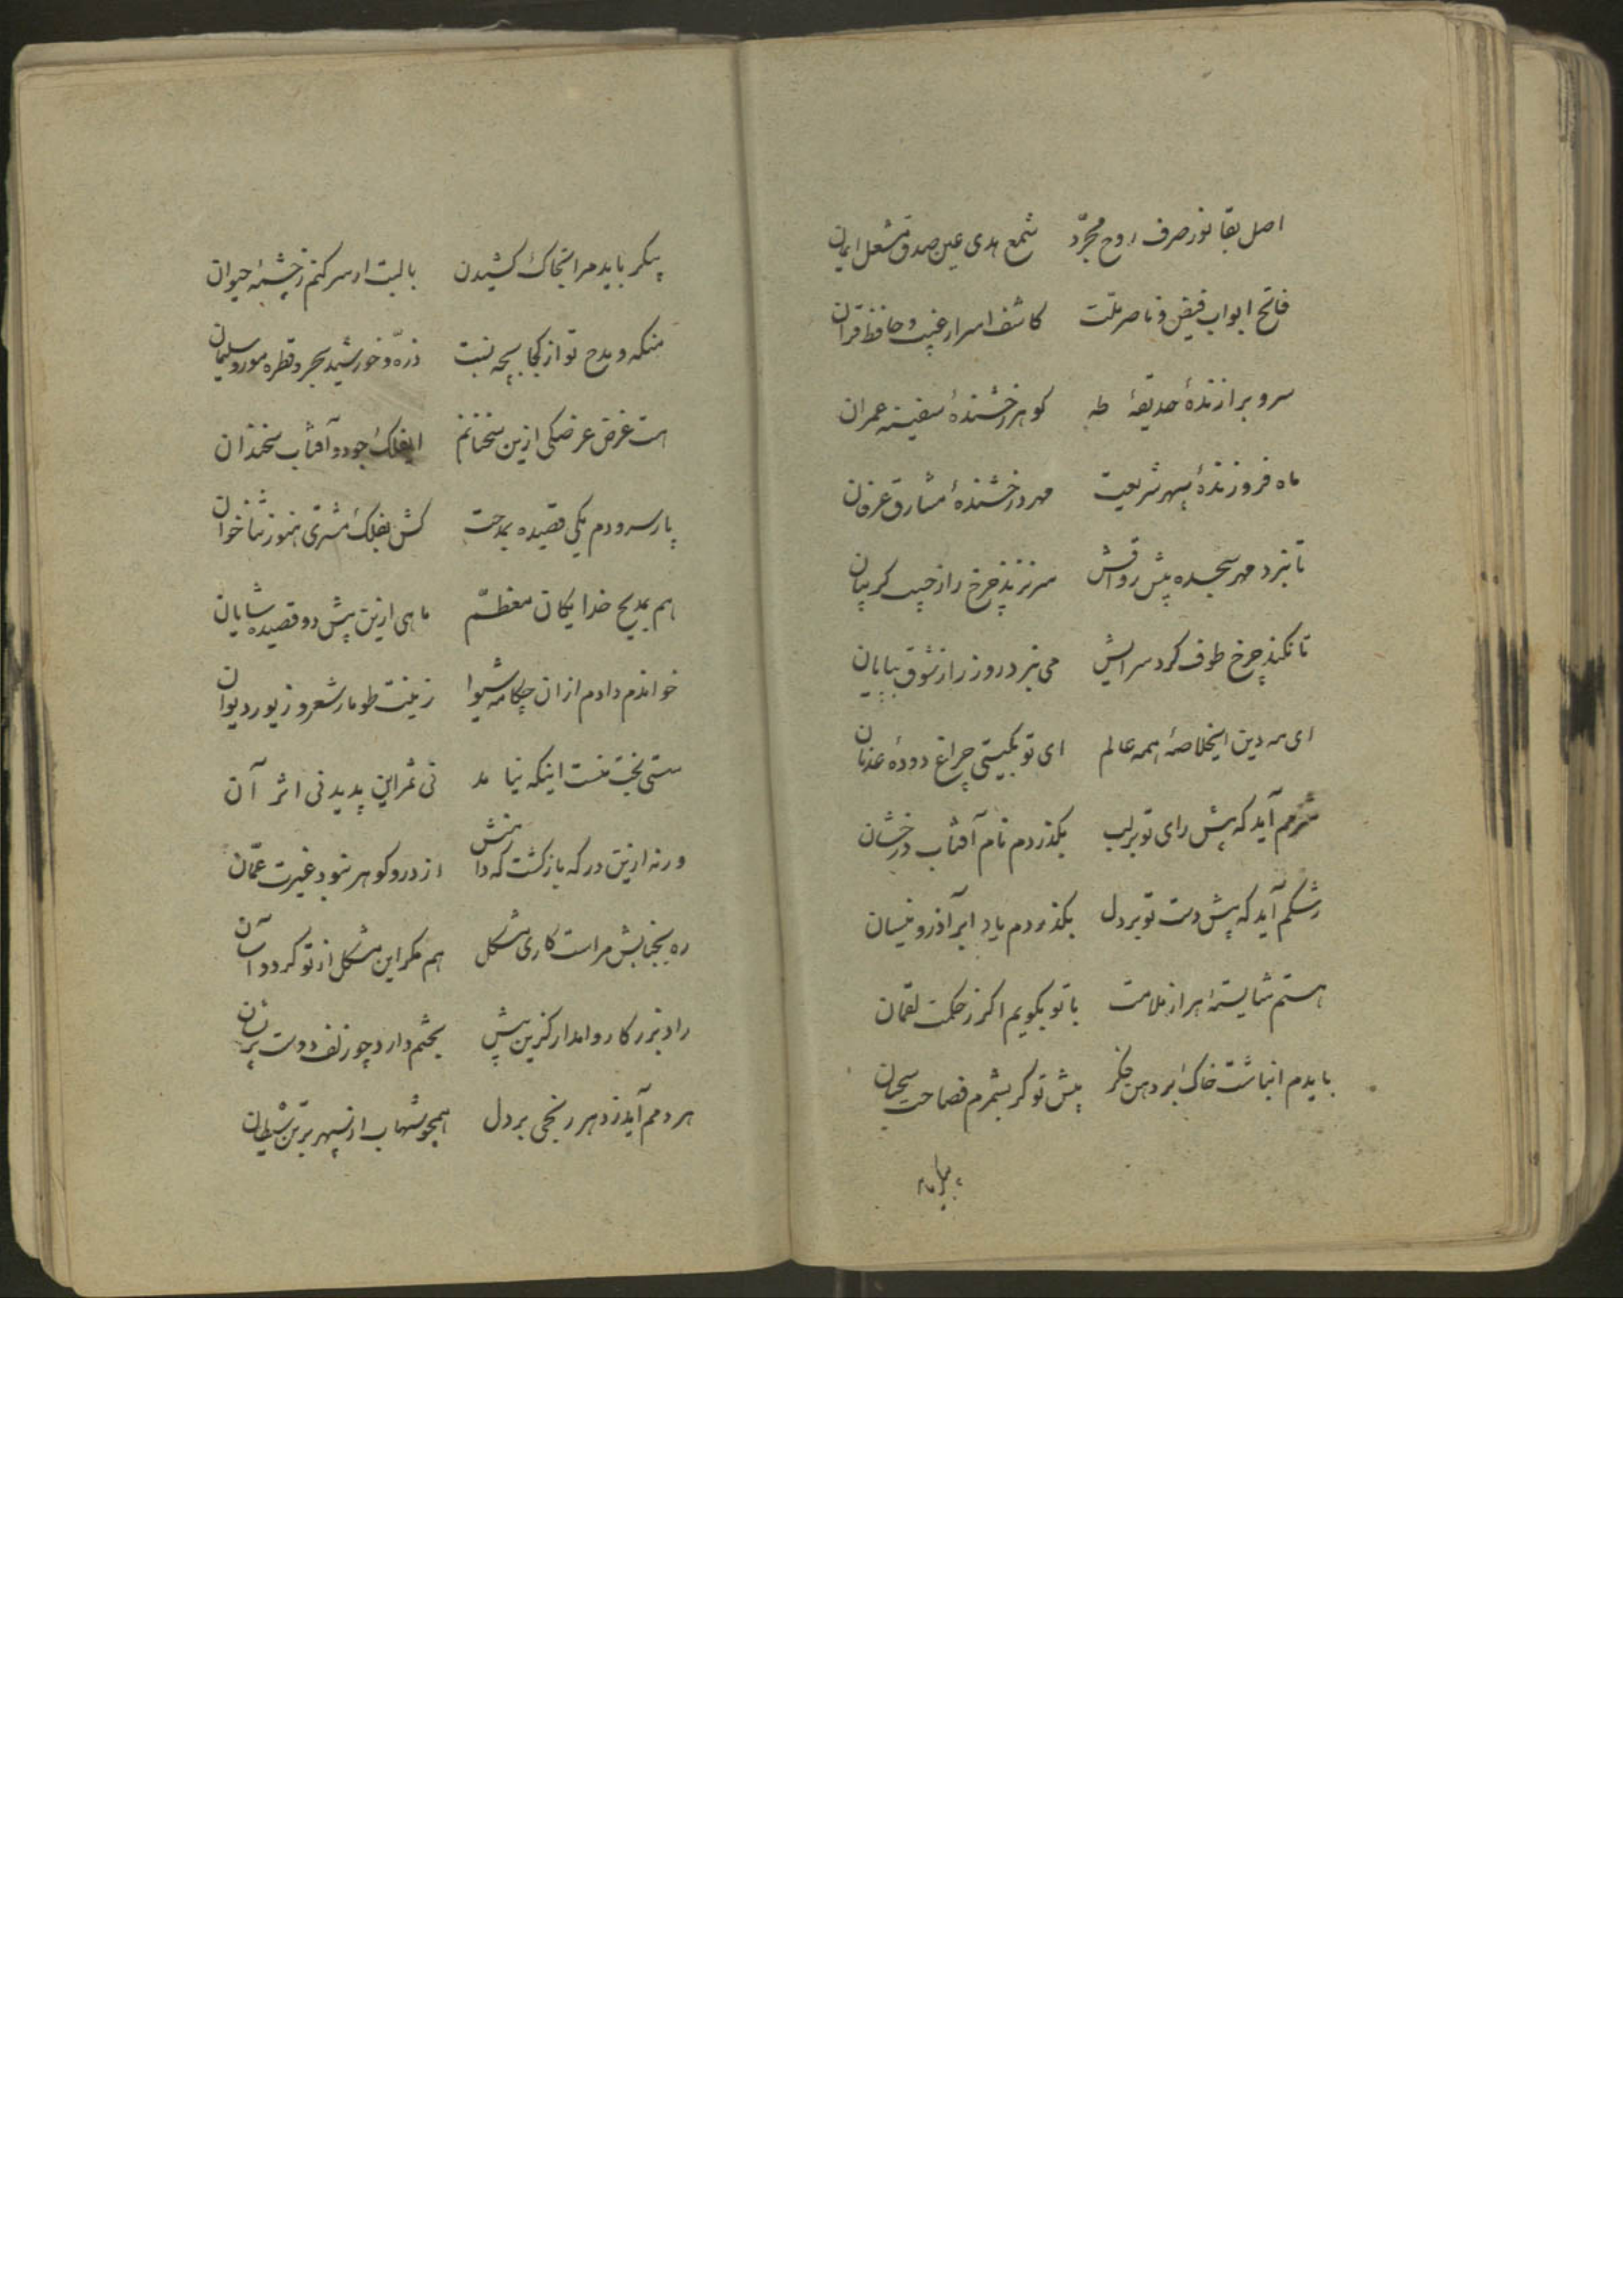 اصل بقا نور صرف روح مجرّد شمع هدی عین صدق مشعل ایمان
فاتح ابواب فیض و ناصر ملّت کاشف اسرار غیب و حافظ قرآن
سرو برازندهٔ حدیقهٔ طه کوهر رخشندهٔ سفینه عمران
ماه فروزندهٔ سپهر شریعت مهر درخشندهٔ مشارق عرفان
تا نبرد مهر سجده پیش رواقش سر نزند چرخ را ز جیب کریبان
تا نکند چرخ طوف کرد سرایش می نبرد روز را ز شوق بپایان
ای مه دین ایخلاصهٔ همه عالم ای تو بکیتی چراغ دودهٔ عدنان
شرمم آید که پیش رای تو بر لب بکذردم نام آفتاب درخشان
رشکم آید که پیش دست تو بر دل بکذردم یاد ابر آذر و نیسان
هستم شایستهٔ هزار ملامت با تو بکویم اکر ز حکمت لقمان
بایدم انباشت خاک بر دهن فکر پیش تو کر بشمرم فصاحت سحبان
پیکر باید مرا بخاک کشیدن با لبت ار سر کنم ز چشمهٔ حیوان
منکه و مدح تو از کجا بچه نسبت ذرّه و خورشید بحر و قطره مور و سلیمان
هست غرض عرضکی ازین سخنانم ایفلک جود و آفتاب سخندان
پار سرودم یکی قصیده بمدحت کش بفلک مشتری هنوز ثناخوان
هم بمدیح خدایکان معظّم ماهی ازین پیش دو قصیده شایان
خواندم دادم از ان چکامه شیوا زینت طومار شعر و زیور دیوان
سستی بخت منست اینکه نیامد نی ثمر این پدید نی اثر آن
ورنه ازین در که بازکشت که دامنش از در و کوهر نبود غیرت عمّان
ره بجنابش مراست کاری مشکل هم مکر این مشکل از تو کردد آسان
راد بزرکا روا مدار کزین پیش بختم دارد چو زلف دوست پریشان
هر دمم آید ز دهر رنجی بر دل همچو شهاب از سپهر بر تن شیطان